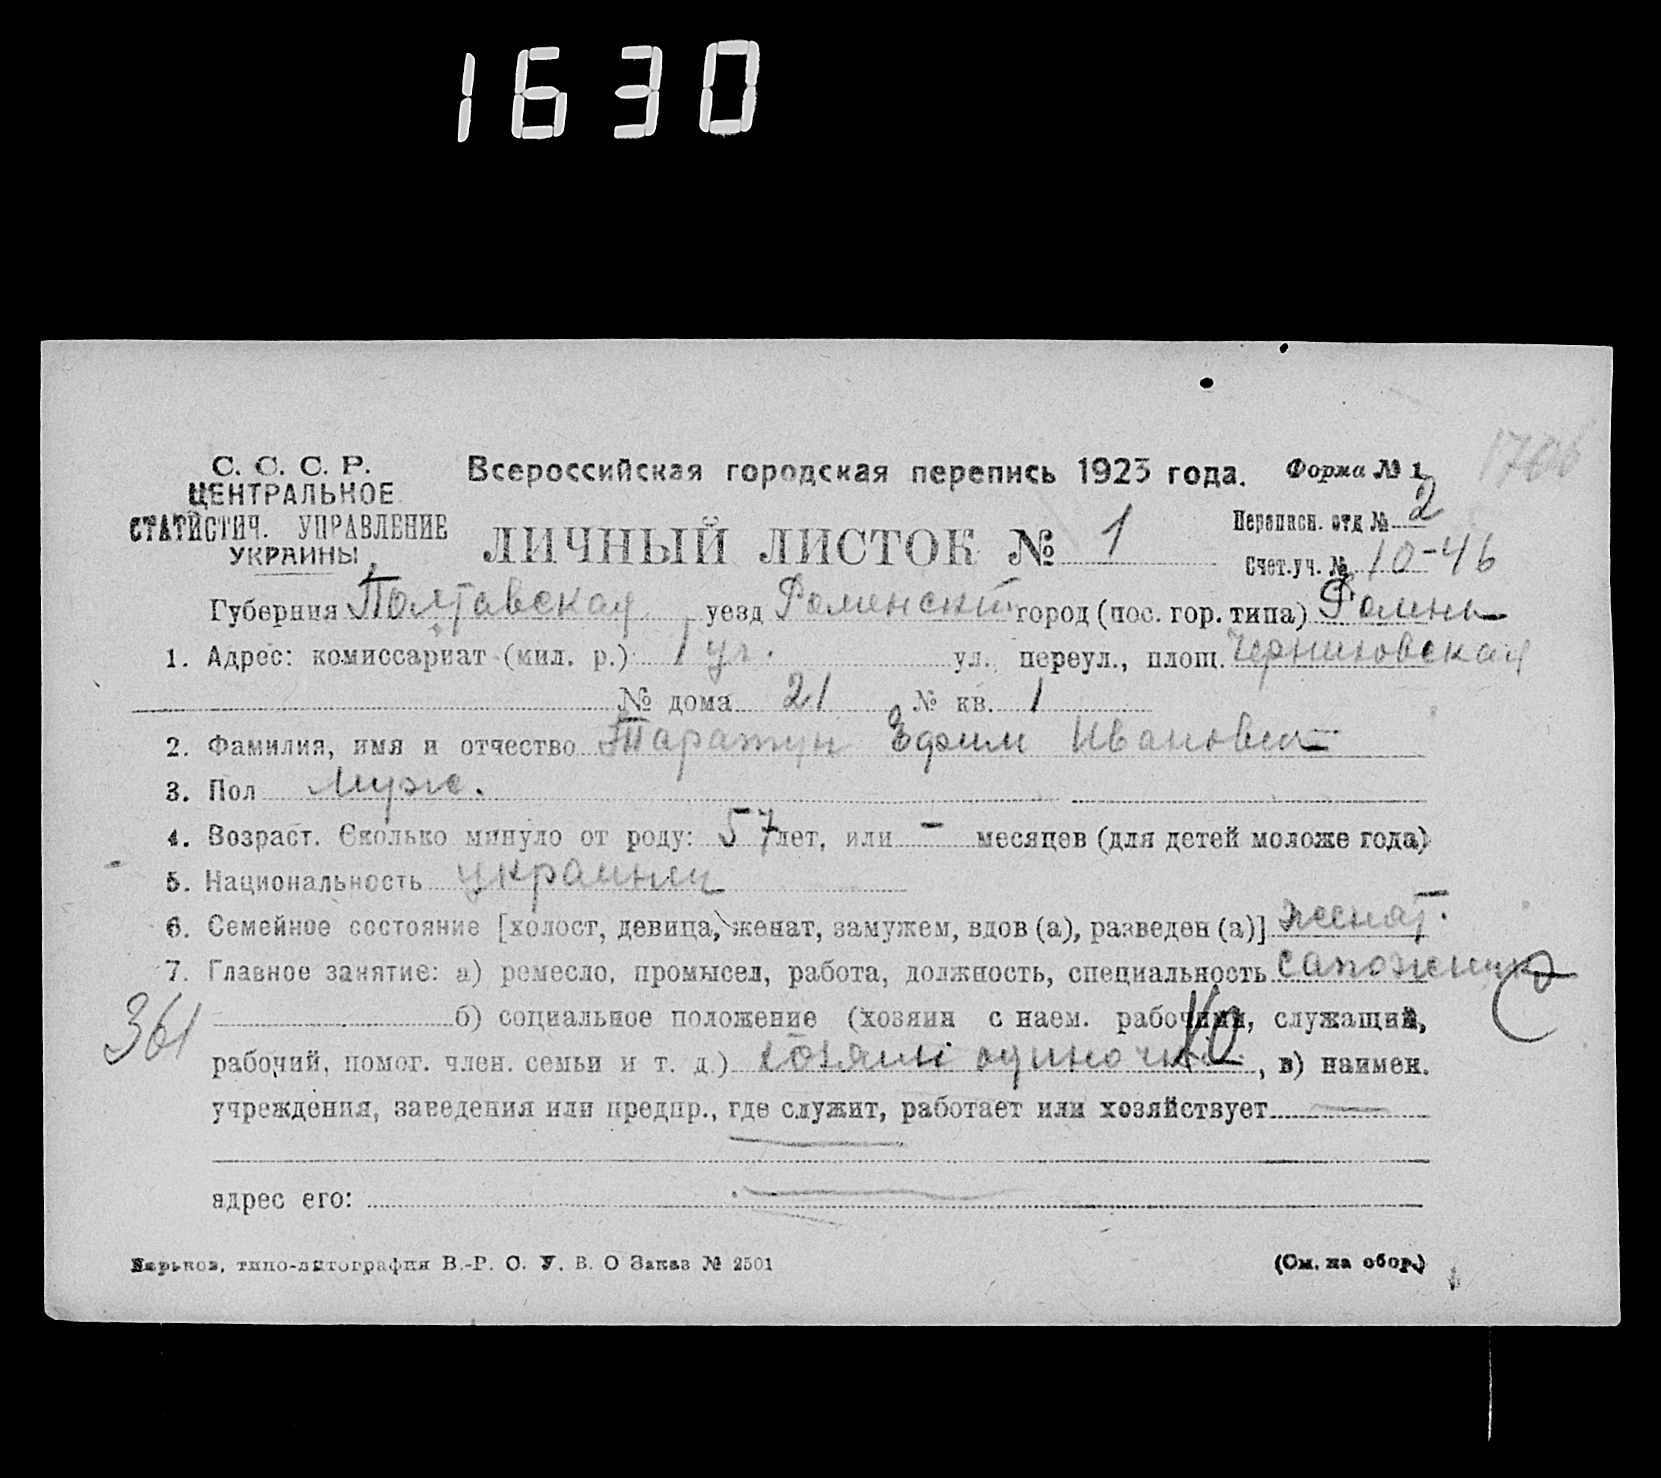 1630
1706
С. С. С. Р.
ЦЕНТРАЛЬНОЕ
СТАТИСТИЧ. УПРАВЛЕНИЕ
УКРАИНЫ
Всероссийская городская перепись 1923 года.
Форма № 1
ЛИЧНЫЙ ЛИСТОК № 1
Переписн. отд № 2
Счет.уч. № 10-46
Губерния Полтавская уезд Роменский город (пос. гор. типа) Ромны
1. Адрес: комиссариат (мил. р.) 1 уч. ул. переул., площ. Черниховская
№ дома 21 № кв. 1
2. Фамилия, имя и отчество Ефим Иванович
3. Пол Муж.
4. Возраст. Сколько минуло от роду: 57 лет, или - месяцев (для детей моложе года)
5. Национальность украинец
6. Семейное состояние [холост, девица, женат, замужем, вдов (а), разведен (а)] женат.
7. Главное занятие: а) ремесло, промысел, работа, должность, специальность сапожник
361
б) социальное положение (хозяин с наем. рабочими, служащий,
10
рабочий, помог. член. семьи и т. д.) хозяин одиночка, в) наимен.
учреждения, заведения или предпр., где служит, работает или хозяйствует —
адрес его:
Харьков, типо-литография В.-Р. С. У. В. О Заказ № 2501
(См. на обор.)